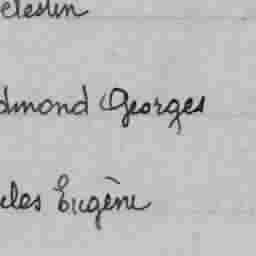 elestin
dmond Georges
ules Eugène